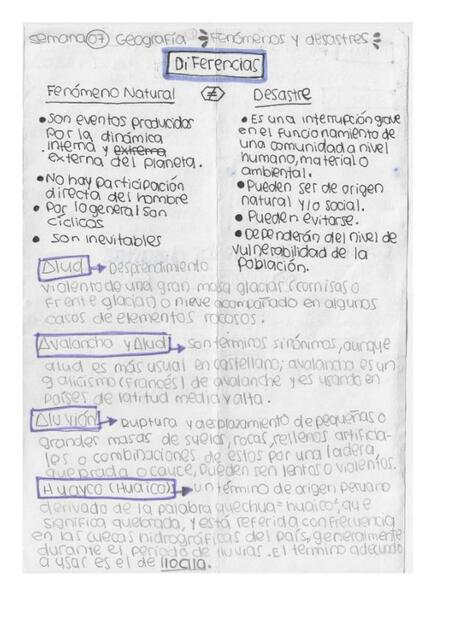 Semana 07 Geografía Fenómenos y desastres
Diferencias
Fenómeno Natural ≠ Desastre
• Son eventos producidos
por la dinámica
interna y extrema
externa del planeta.
• No hay participación
directa del hombre
• Por lo general son
cíclicos
• son inevitables
• Es una interrupción grave
en el funcionamiento de
una comunidad a nivel
humano, material o
ambiental.
• Pueden ser de origen
natural y/o social.
• Pueden evitarse.
• Dependerán del nivel de
vulnerabilidad de la
población.
Alud → Desprendimiento
violento de una gran masa glaciar (cornisas o
frente glaciar) o nieve acompañado en algunos
casos de elementos rocosos.
Avalancha y Alud → son términos sinónimos, aunque
alud es más usual en castellano; avalancha es un
galicismo (francés) de avalanche y es usando en
países de latitud media y alta.
Aluvión → Ruptura y desplazamiento de pequeñas o
grandes masas de suelos, rocas, rellenos artificia-
les o combinaciones de estos por una ladera,
quebrada o cauce, pueden ser lentos o violentos.
Huayco (Huaico) → un término de origen peruano
derivado de la palabra quechua "huaico", que
significa quebrada, y está referida con frecuencia
en las cuecas hidrográficas del país, generalmente
durante el período de lluvias. El término adecuado
a usar es el de lloclla.